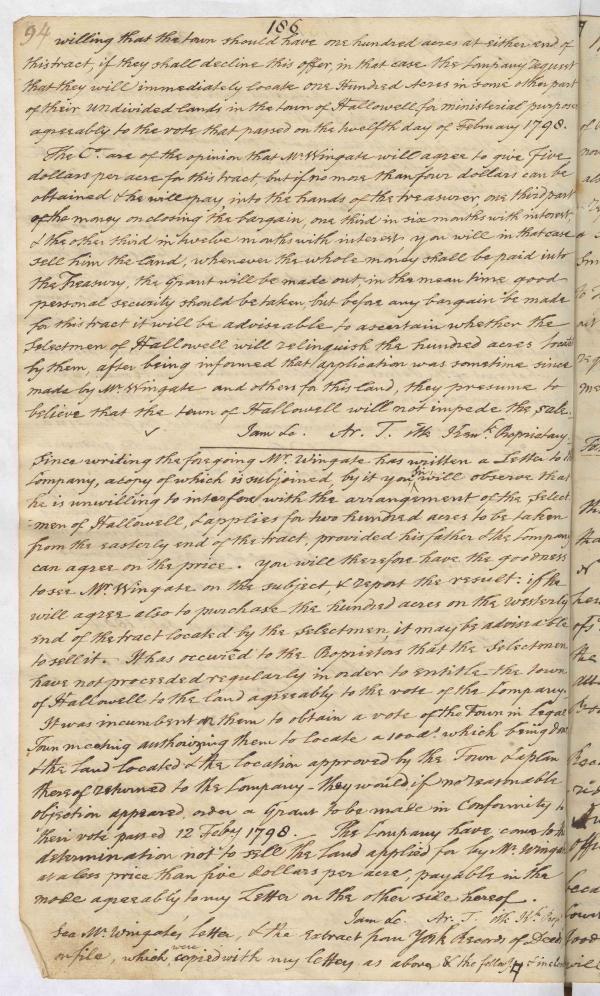 94 186
willing that the town should have one hundred acres at either end of
this tract, if they shall decline this offer, in that case the Company request
that they will immediately locate one Hundred Acres in some other part
of their undivided lands in the town of Hallowell for ministerial purposes
agreeably to the vote that passed on the twelfth day of February 1798.
The Co. are of the opinion that Mr. Wingate will agree to give Five
dollars per acre for this tract, but if no more than four dollars can be
obtained & he will pay, into the hands of the treasurer one third part
of the money on closing the bargain, one third in six months with interest,
& the other third in twelve months with interest, you will in that case
sell him the land, whenever the whole money shall be paid into
the Treasury, the Grant will be made out, in the mean time good
personal security should be taken, but before any bargain be made
for this tract it will be adviseable to ascertain whether the
Selectmen of Hallowell will relinquish the hundred acres located
by them, after being informed that application was sometime since
made by Mr. Wingate and others for this land, they presume to
believe that the town of Hallowell will not impede the sale.
I am &c. Ar. T. Propriatary.
Since writing the foregoing Mr. Wingate has written a Letter to the
Company, a copy of which is subjoined, by it you will observe that
he is unwilling to interfere with the arrangement of the Select
men of Hallowell, & applies for two hundred acres to be taken
from the easterly end of the tract, provided his father & the Company
can agree on the price. You will therefore have the goodness
to see Mr. Wingate on the subject, & report the result: if he
will agree also to purchase the hundred acres on the westerly
end of the tract located by the Selectmen, it may be adviseable
to sell it. It has occured to the Propriators that the Selectmen
have not proceeded regularly in order to entitle the town
of Hallowell to the land agreeably to the vote of the Company.
It was incumbent on them to obtain a vote of the Town in legal
Town meeting authorizing them to locate a 100 ds. which being done
& the Land located & the location approved by the Town & a plan
thereof returned to the Company - they would if no reasonable
objection appeared, order a Grant to be made in Conformity to
their vote passed 12 Feby. 1798. The Company have come to the
determination not to sell the land applied for by Mr. Wingate
at a less price than five Dollars per acre, payable in the
mode agreeably to my Letter on the other side hereof.
I am &c. Ar. T.
See Mr. Wingate's letter, & the extract from York Records of Deeds
on file, which were copied with my letter, as above & the follow